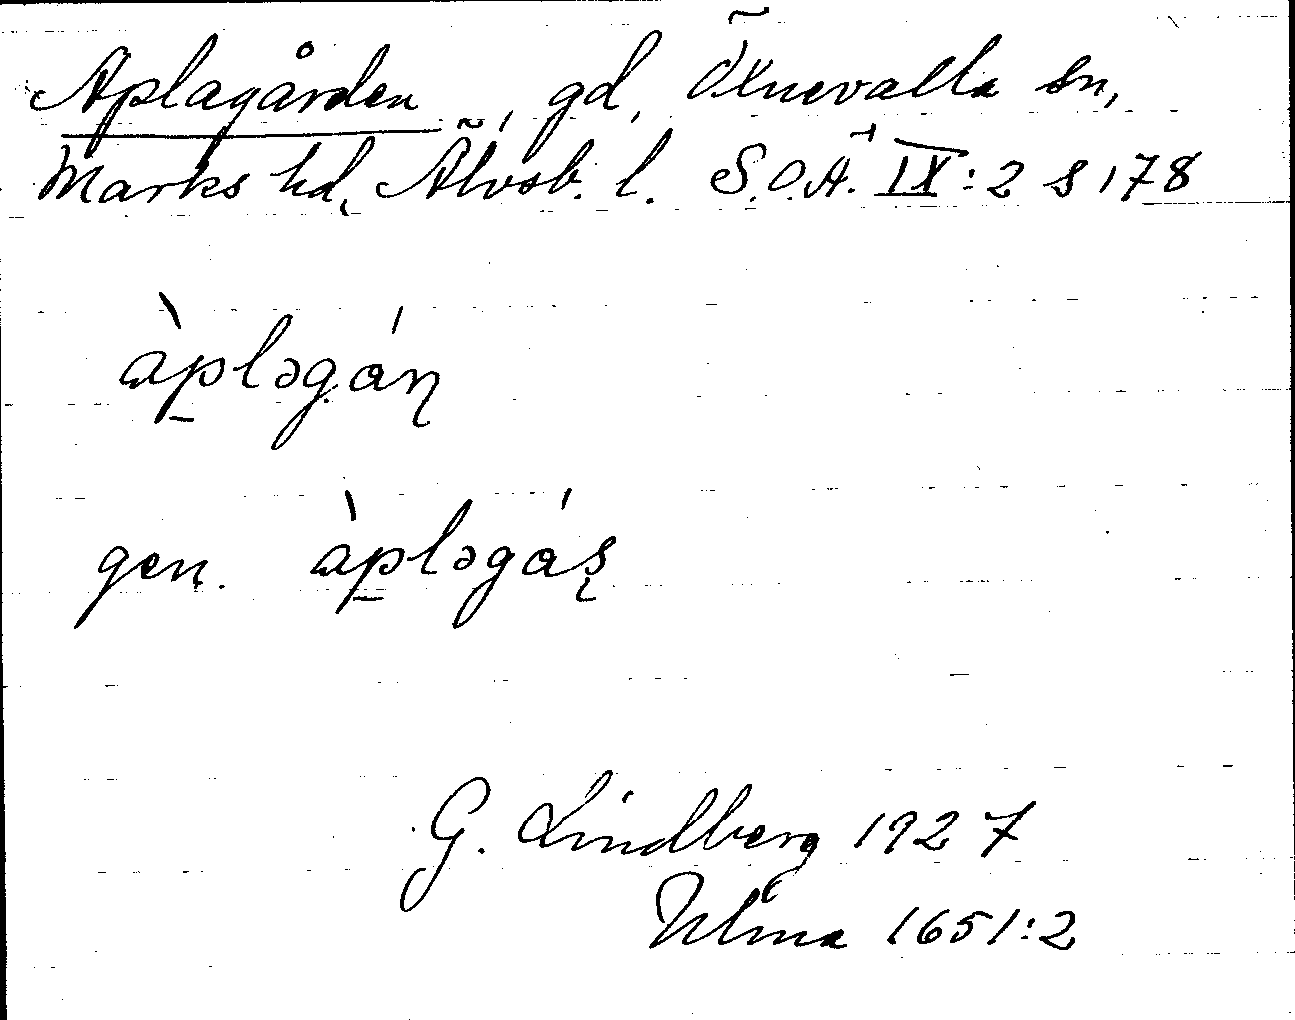 Aplagården, gd, Öxnevalla sn,
Marks hd, Älvsb. l. S.O.Ä. IX:2 s 178
àpləgáɳ
gen. àpləgáʂ
G. Lindberg 1927
Ulma 1651:2